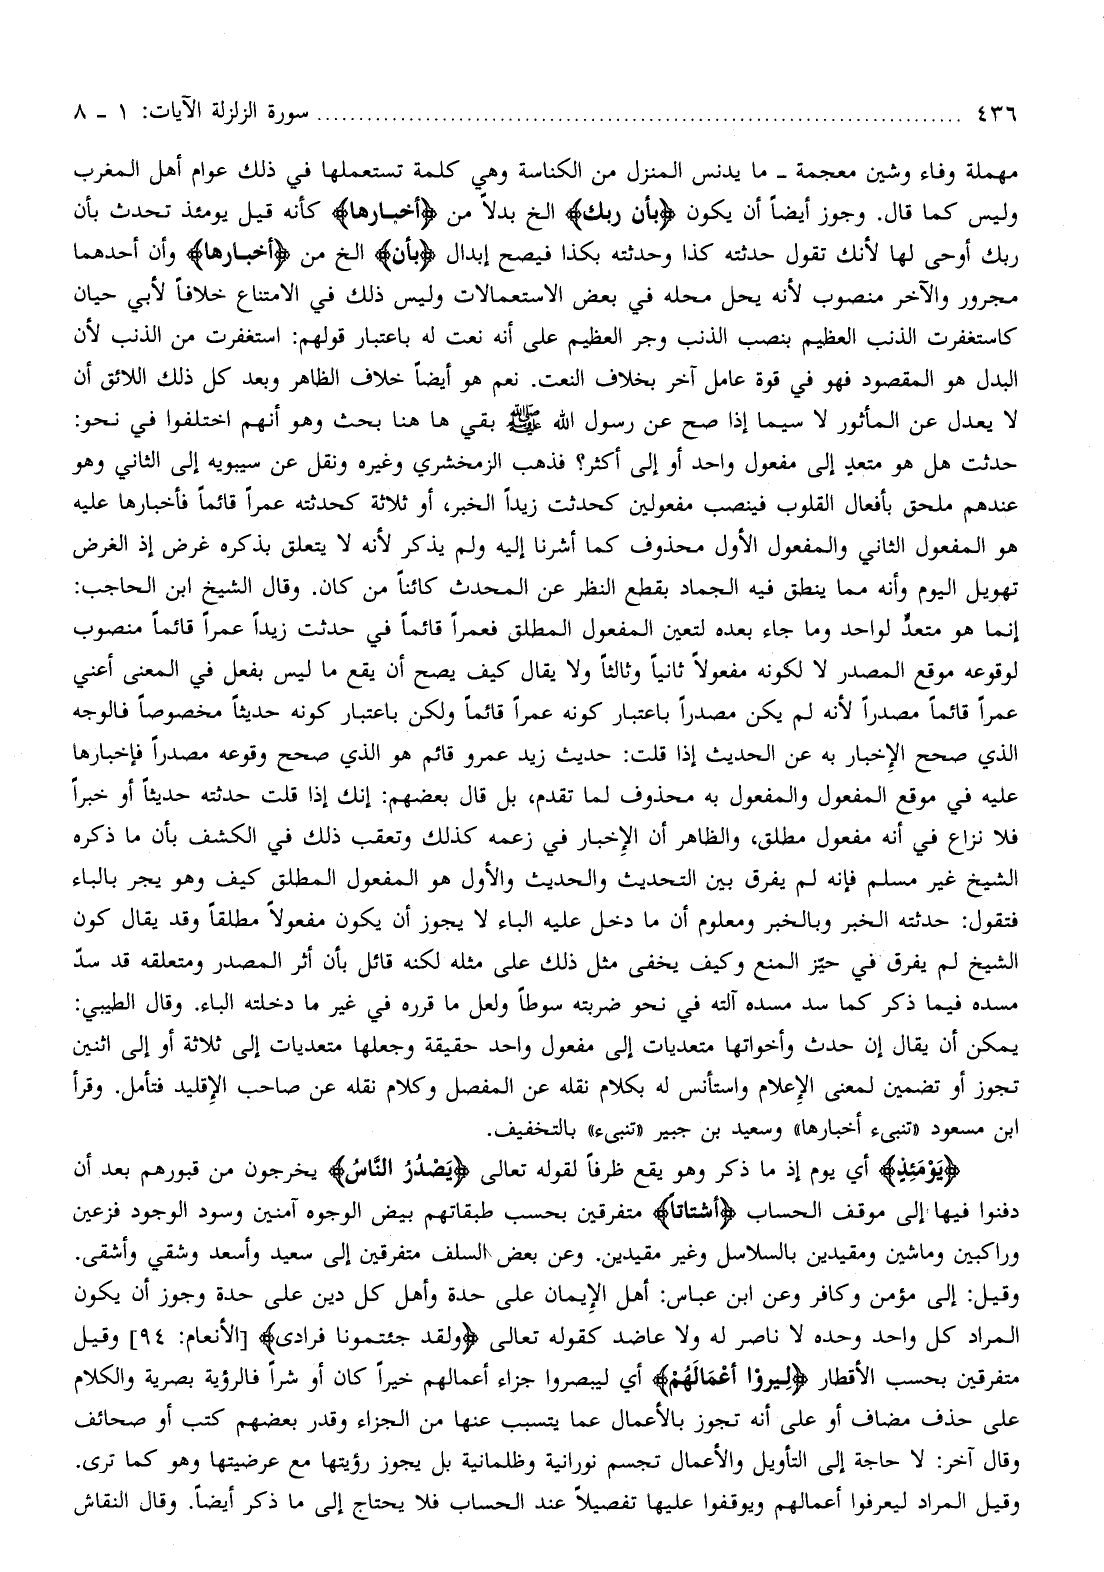 ٤٣٦ ........................................................................ سورة الزلزلة الآيات: ١ ـ ٨
مهملة وفاء وشين معجمة ـ ما يدنس المنزل من الكناسة وهي كلمة تستعملها في ذلك عوام أهل المغرب
وليس كما قال. وجوز أيضاً أن يكون ﴿بأن ربك﴾ الخ بدلاً من ﴿أخبارها﴾ كأنه قيل يومئذ تحدث بأن
ربك أوحى لها لأنك تقول حدثته كذا وحدثته بكذا فيصح إبدال ﴿بأن﴾ الخ من ﴿أخبارها﴾ وأن أحدهما
مجرور والآخر منصوب لأنه يحل محله في بعض الاستعمالات وليس ذلك في الامتناع خلافاً لأبي حيان
كاستغفرت الذنب العظيم بنصب الذنب وجر العظيم على أنه نعت له باعتبار قولهم: استغفرت من الذنب لأن
البدل هو المقصود فهو في قوة عامل آخر بخلاف النعت. نعم هو أيضاً خلاف الظاهر وبعد كل ذلك اللائق أن
لا يعدل عن المأثور لا سيما إذا صح عن رسول الله ﷺ بقي ها هنا بحث وهو أنهم اختلفوا في نحو:
حدثت هل هو متعدٍ إلى مفعول واحد أو إلى أكثر؟ فذهب الزمخشري وغيره ونقل عن سيبويه إلى الثاني وهو
عندهم ملحق بأفعال القلوب فينصب مفعولين كحدثت زيداً الخبر، أو ثلاثة كحدثته عمراً قائماً فأخبارها عليه
هو المفعول الثاني والمفعول الأول محذوف كما أشرنا إليه ولم يذكر لأنه لا يتعلق بذكره غرض إذ الغرض
تهويل اليوم وأنه مما ينطق فيه الجماد بقطع النظر عن المحدث كائناً من كان. وقال الشيخ ابن الحاجب:
إنما هو متعدٍّ لواحد وما جاء بعده لتعين المفعول المطلق فعمراً قائماً في حدثت زيداً عمراً قائماً منصوب
لوقوعه موقع المصدر لا لكونه مفعولاً ثانياً وثالثاً ولا يقال كيف يصح أن يقع ما ليس بفعل في المعنى أعني
عمراً قائماً مصدراً لأنه لم يكن مصدراً باعتبار كونه عمراً قائماً ولكن باعتبار كونه حديثاً مخصوصاً فالوجه
الذي صحح الإخبار به عن الحديث إذا قلت: حديث زيد عمرو قائم هو الذي صحح وقوعه مصدراً فإخبارها
عليه في موقع المفعول والمفعول به محذوف لما تقدم، بل قال بعضهم: إنك إذا قلت حدثته حديثاً أو خبراً
فلا نزاع في أنه مفعول مطلق، والظاهر أن الإخبار في زعمه كذلك وتعقب ذلك في الكشف بأن ما ذكره
الشيخ غير مسلم فإنه لم يفرق بين التحديث والحديث والأول هو المفعول المطلق كيف وهو يجر بالباء
فتقول: حدثته الخبر وبالخبر ومعلوم أن ما دخل عليه الباء لا يجوز أن يكون مفعولاً مطلقاً وقد يقال كون
الشيخ لم يفرق في حيّز المنع وكيف يخفى مثل ذلك على مثله لكنه قائل بأن أثر المصدر ومتعلقه قد سدّ
مسده فيما ذكر كما سد مسده آلته في نحو ضربته سوطاً ولعل ما قرره في غير ما دخلته الباء. وقال الطيبي:
يمكن أن يقال إن حدث وأخواتها متعديات إلى مفعول واحد حقيقة وجعلها متعديات إلى ثلاثة أو إلى اثنين
تجوز أو تضمين لمعنى الإعلام واستأنس له بكلام نقله عن المفصل وكلام نقله عن صاحب الإقليد فتأمل. وقرأ
ابن مسعود «تنبىء أخبارها» وسعيد بن جبير «تنبىء» بالتخفيف.
﴿يَوْمَئِذٍ﴾ أي يوم إذ ما ذكر وهو يقع ظرفاً لقوله تعالى ﴿يَصْدُرُ النَّاسُ﴾ يخرجون من قبورهم بعد أن
دفنوا فيها إلى موقف الحساب ﴿أشتاتاً﴾ متفرقين بحسب طبقاتهم بيض الوجوه آمنين وسود الوجود فزعين
وراكبين وماشين ومقيدين بالسلاسل وغير مقيدين. وعن بعض السلف متفرقين إلى سعيد وأسعد وشقي وأشقى.
وقيل: إلى مؤمن وكافر وعن ابن عباس: أهل الإيمان على حدة وأهل كل دين على حدة وجوز أن يكون
المراد كل واحد وحده لا ناصر له ولا عاضد كقوله تعالى ﴿ولقد جئتمونا فرادى﴾ [الأنعام: ٩٤] وقيل
متفرقين بحسب الأقطار ﴿لِيروْا أعْمَالَهُمْ﴾ أي ليبصروا جزاء أعمالهم خيراً كان أو شراً فالرؤية بصرية والكلام
على حذف مضاف أو على أنه تجوز بالأعمال عما يتسبب عنها من الجزاء وقدر بعضهم كتب أو صحائف
وقال آخر: لا حاجة إلى التأويل والأعمال تجسم نورانية وظلمانية بل يجوز رؤيتها مع عرضيتها وهو كما ترى.
وقيل المراد ليعرفوا أعمالهم ويوقفوا عليها تفصيلاً عند الحساب فلا يحتاج إلى ما ذكر أيضاً. وقال النقاش